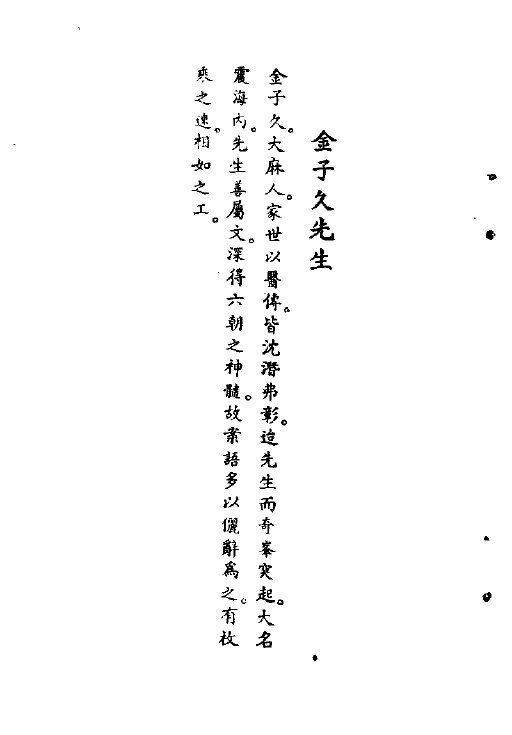 金子久先生
金子久。大麻人。家世以醫傳。皆沈潛弗彰。迨先生而奇峯突起。大名
震海內。先生善屬文。深得六朝之神髓。故案語多以儷辭爲之。有枚
乘之速。相如之工。